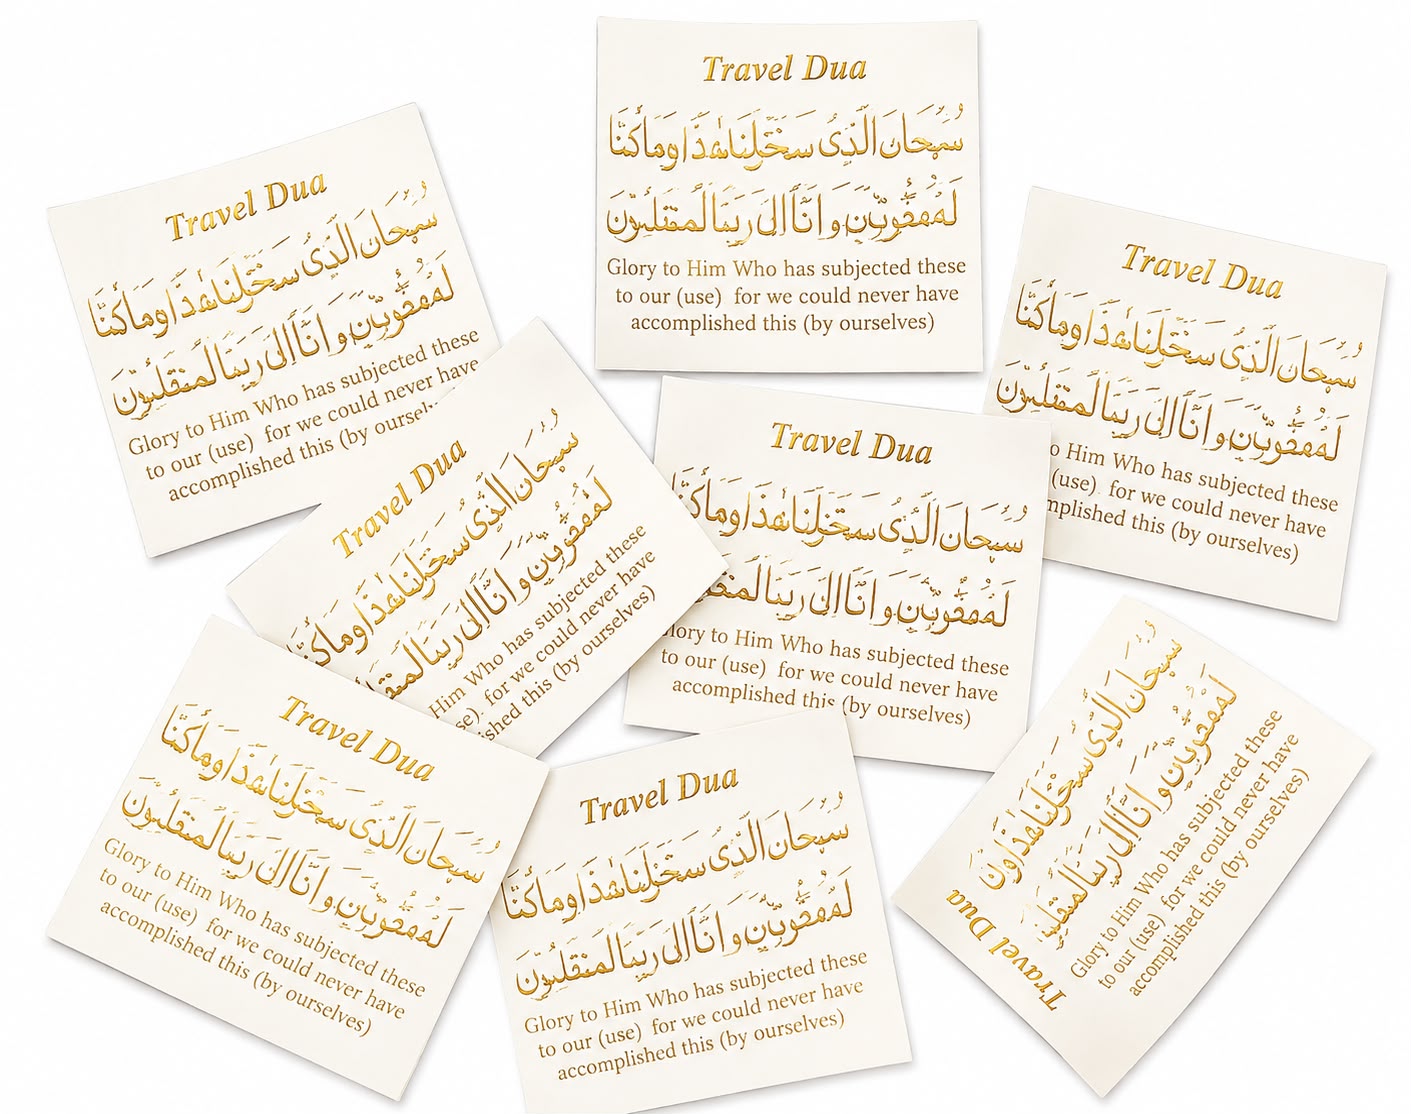 Travel Dua
سُبحان الَّذِی سخّرلنا هٰذَا وَمَا كُنَّا
لَهُ و اِنَّا اِلیٰ رَبِّنَا لَمُنقَلِبُون
Glory to Him Who has subjected these
to our (use) for we could never have
accomplished this (by ourselves)
Travel Dua
سُبحان الَّذِی سخّرلنا هٰذَا وَمَا كُنَّا
لَهُ و اِنَّا اِلیٰ رَبِّنَا لَمُنقَلِبُون
Glory to Him Who has subjected these
to our (use) for we could never have
accomplished this (by
Travel Dua
سُبحان الَّذِی سخّرلنا هٰذَا وَمَا كُنَّا
لَهُ و اِنَّا اِلیٰ رَبِّنَا لَمُنقَلِبُون
Him Who has subjected these
(use) for we could never have
this (by ourselves)
Travel Dua
سُبحان الَّذِی سخّرلنا هٰذَا وَمَا كُنَّا
لَهُ و اِنَّا اِلیٰ رَبِّنَا
Him Who has subjected these
for we could never have
this (by ourselves)
Travel Dua
سُبحان الَّذِی سخّرلنا هٰذَا وَمَا كُنَّا
لَهُ و اِنَّا اِلیٰ رَبِّنَا
to Him Who has subjected these
to our (use) for we could never have
accomplished this (by ourselves)
Travel Dua
سُبحان الَّذِی سخّرلنا هٰذَا وَمَا كُنَّا
لَهُ و اِنَّا اِلیٰ رَبِّنَا لَمُنقَلِبُون
Glory to Him Who has subjected these
to our (use) for we could never have
accomplished this (by ourselves)
Travel Dua
سُبحان الَّذِی سخّرلنا هٰذَا وَمَا كُنَّا
لَهُ و اِنَّا اِلیٰ رَبِّنَا لَمُنقَلِبُون
Glory to Him Who has subjected these
to our (use) for we could never have
accomplished this (by ourselves)
Travel Dua
سُبحان الَّذِی سخّرلنا هٰذَا
لَهُ و اِنَّا اِلیٰ رَبِّنَا
Glory to Him Who has subjected these
to our (use) for we could never have
accomplished this (by ourselves)